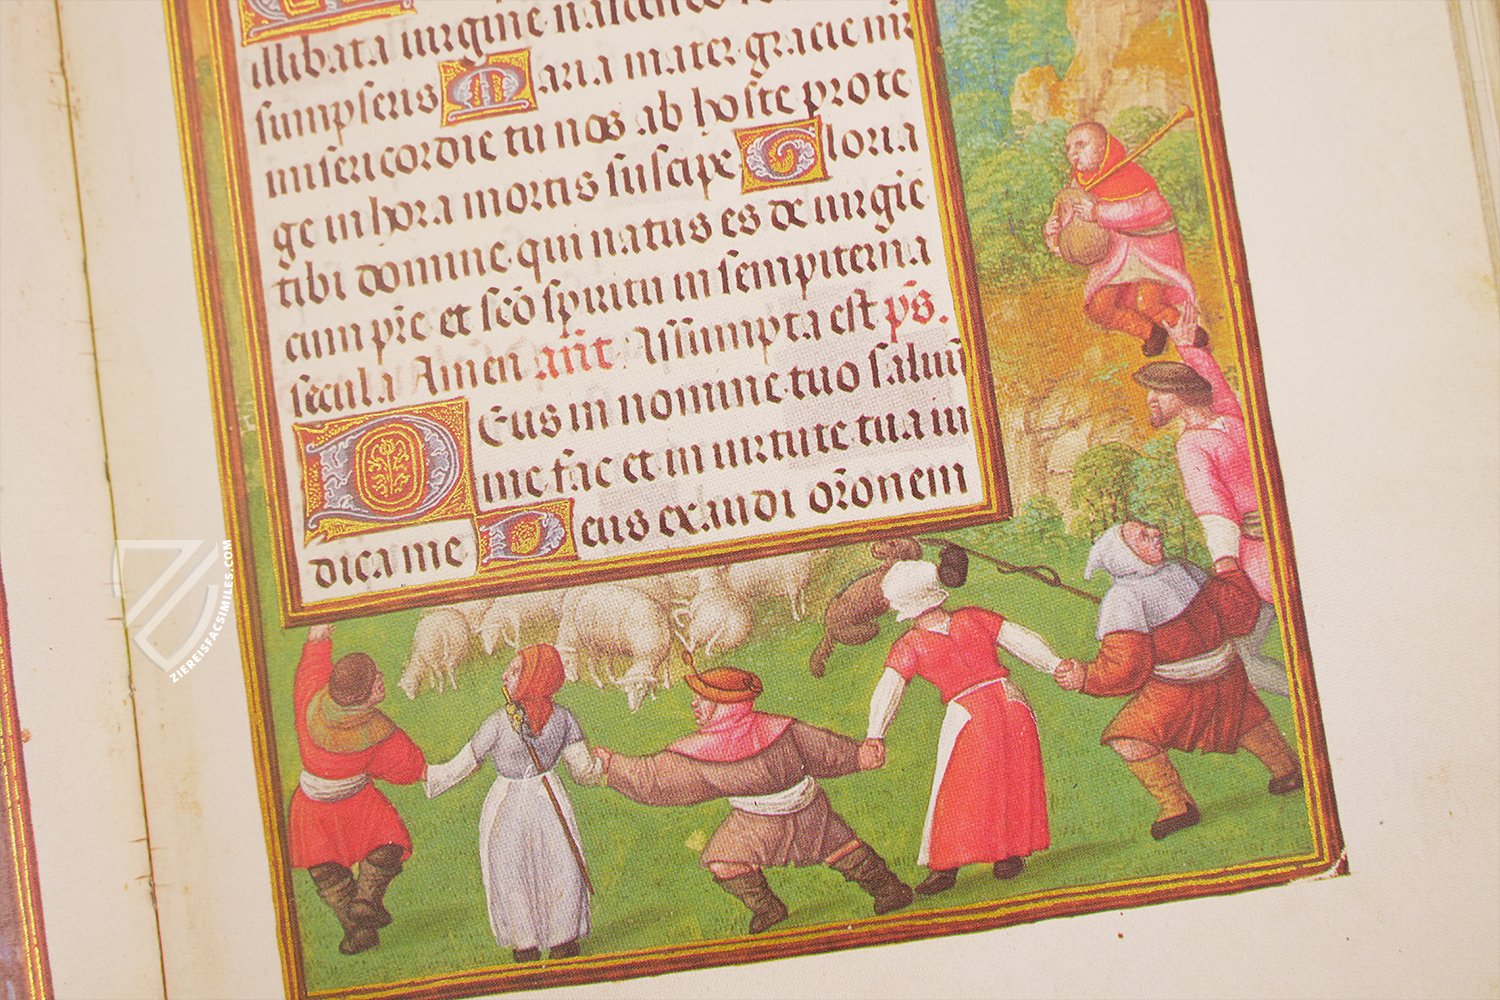 illibata virgine nascendo
sumpseris Maria mater gracie
misericordie tu nos ab hoste prote
ge in hora mortis suscipe Gloria
tibi domine qui natus es de virgīe
cum pr̄e et sc̄o spiritu in sempiterna
secula Amen an̄t. Assumpta est ps̄.
DEus in nomine tuo saluū
me fac et in uirtute tua iu
dica me Deus exaudi or̄onem
ZIEREISFACSIMILES.COM